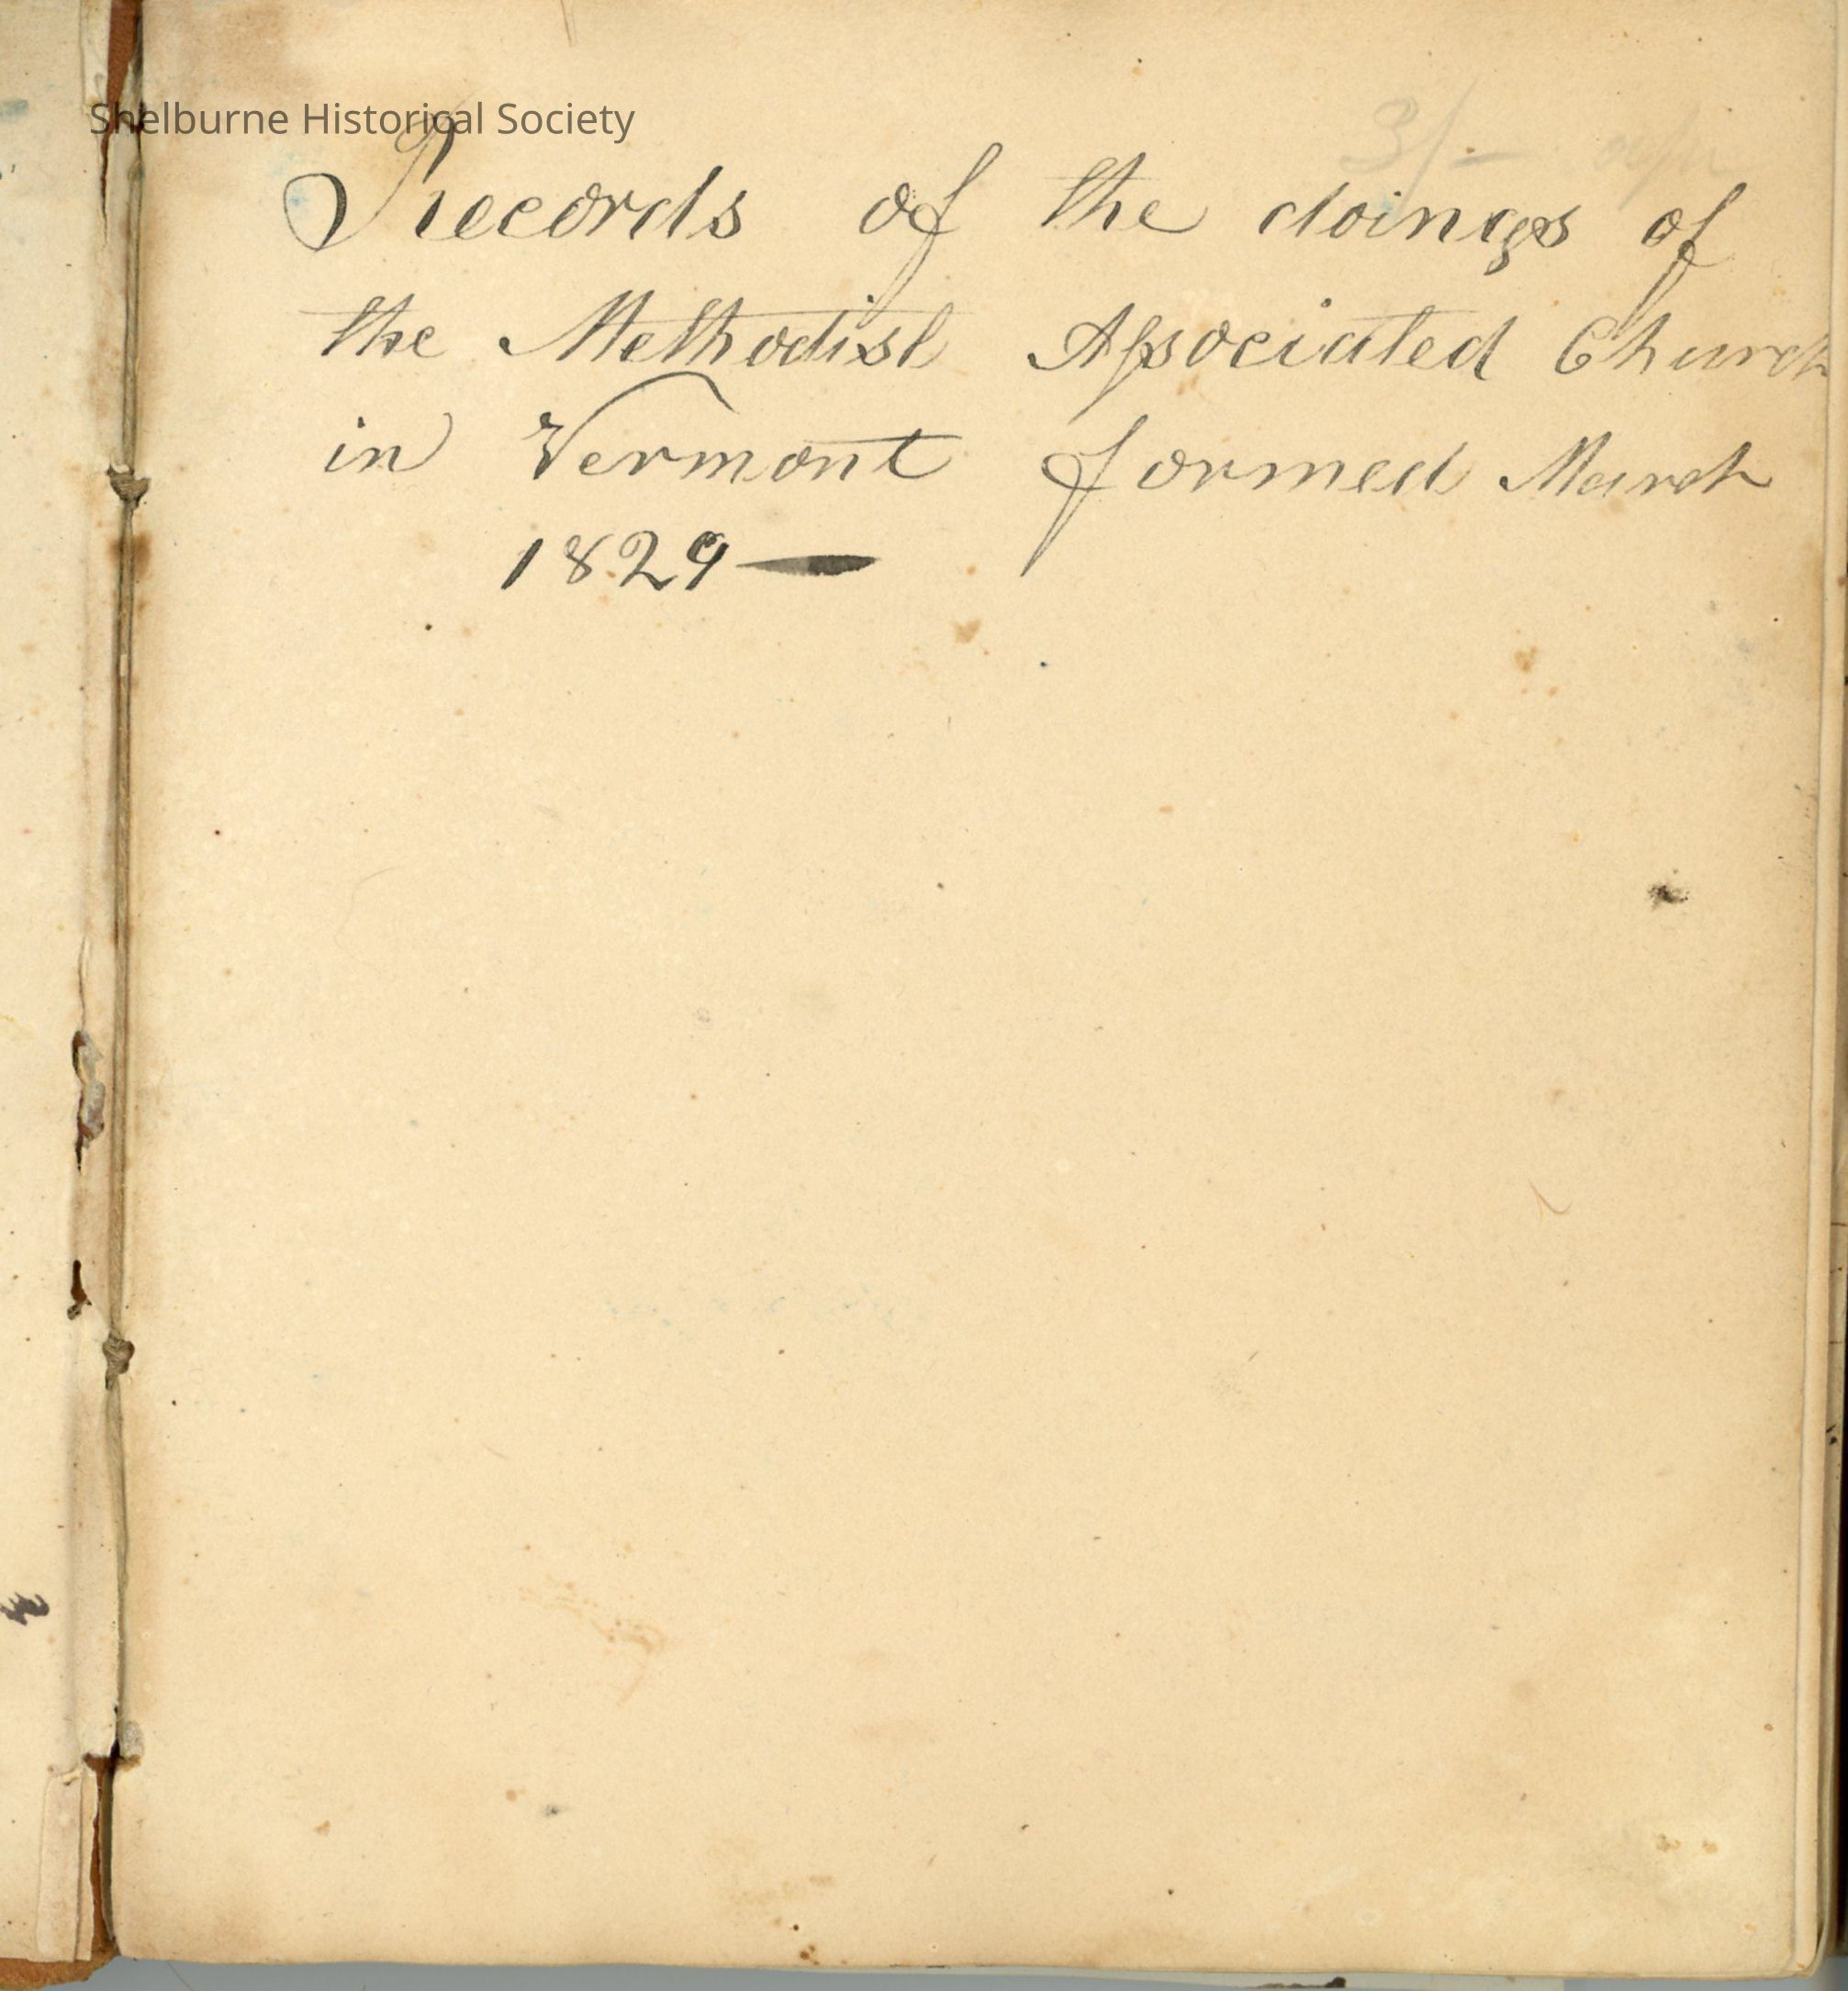 Shelburne Historical Society
Records of the doings of
the Methodist Associated Church
in Vermont formed March
1829 —